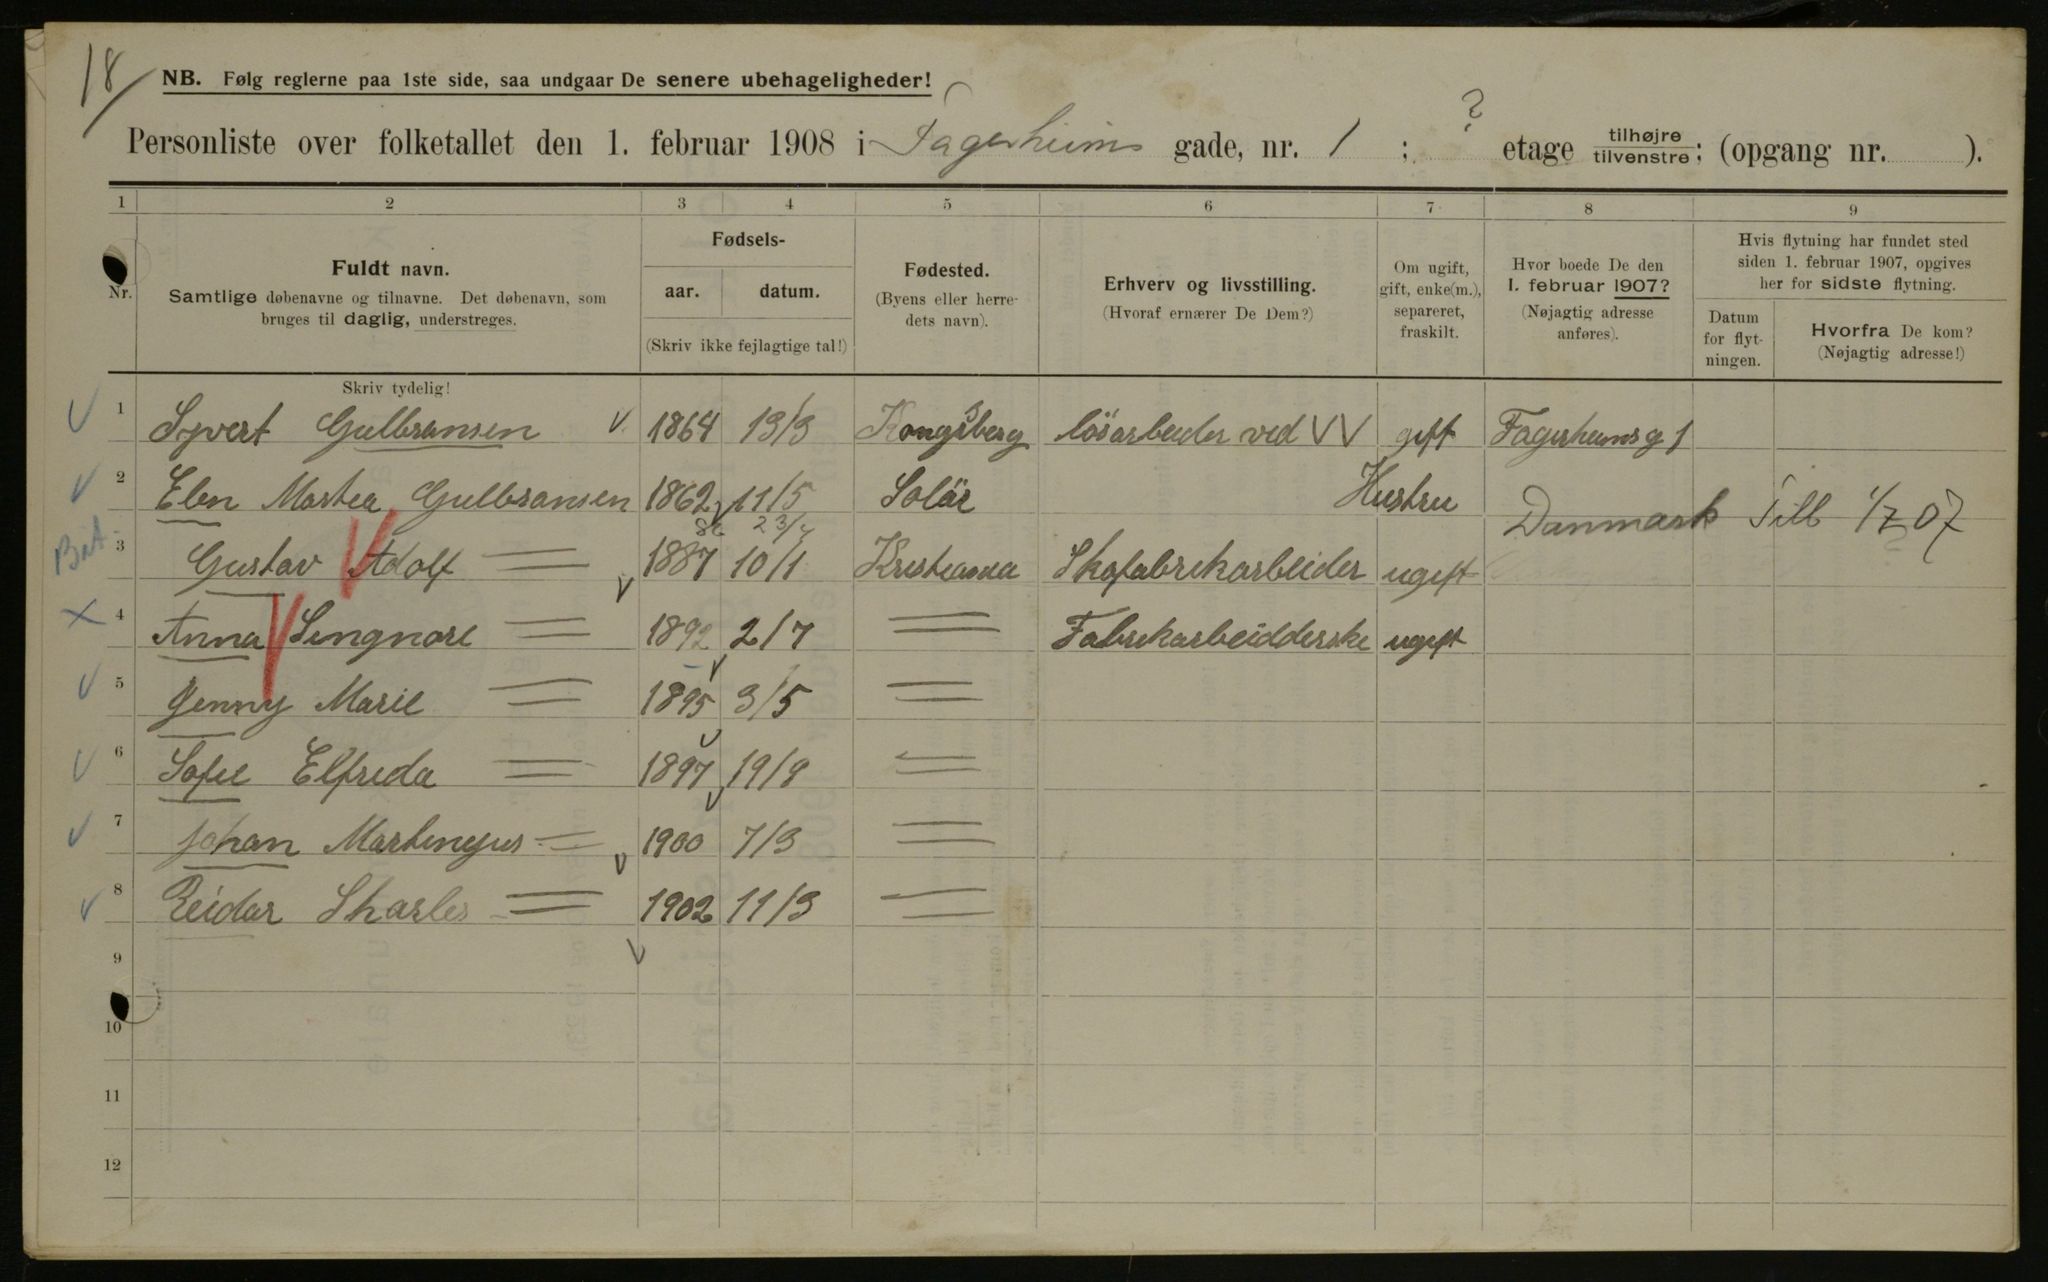 18/
NB. Følg reglerne paa 1ste side, saa undgaar De senere ubehageligheder!
Personliste over folketallet den 1. februar 1908 i Fagerheims gade, nr. 1 ; ? etage tilhøjre tilvenstre; (opgang nr. ).
1 2 3 4 5 6 7 8 9
Nr.
Fuldt navn.
Samtlige døbenavne og tilnavne. Det døbenavn, som
bruges til daglig, understreges.
Skriv tydelig!
Fødsels-
aar. datum.
(Skriv ikke fejlagtige tal!)
Fødested.
(Byens eller herre-
dets navn).
Erhverv og livsstilling.
(Hvoraf ernærer De Dem?)
Om ugift,
gift, enke(m.),
separeret,
fraskilt.
Hvor boede De den
1. februar 1907?
(Nøjagtig adresse
anføres).
Hvis flytning har fundet sted
siden 1. februar 1907, opgives
her for sidste flytning.
Datum
for flyt-
ningen.
Hvorfra De kom?
(Nøjagtig adresse!)
1 Syvert Gulbransen 1864 13/3 Kongsberg løsarbeider ved VV gift Fagerheimsg 1
2 Elen Martea Gulbransen 1862 11/5 Solør Hustru
86 23/4
3 Gustav Adolf 〃 1887 10/1 Kristiania Skofabrikarbeider ugift Danmark Till 1/7 07
4 Anna Singnore 〃 1892 2/7 〃 Fabrikarbeidderske ugift
5 Jenny Marie 〃 1895 3/5 〃
6 Sofie Elfrida 〃 1897 19/9 〃
7 Johan Martinyus 〃 1900 7/3 〃
8 Reidar Sharles 〃 1902 11/3 〃
9
10
11
12